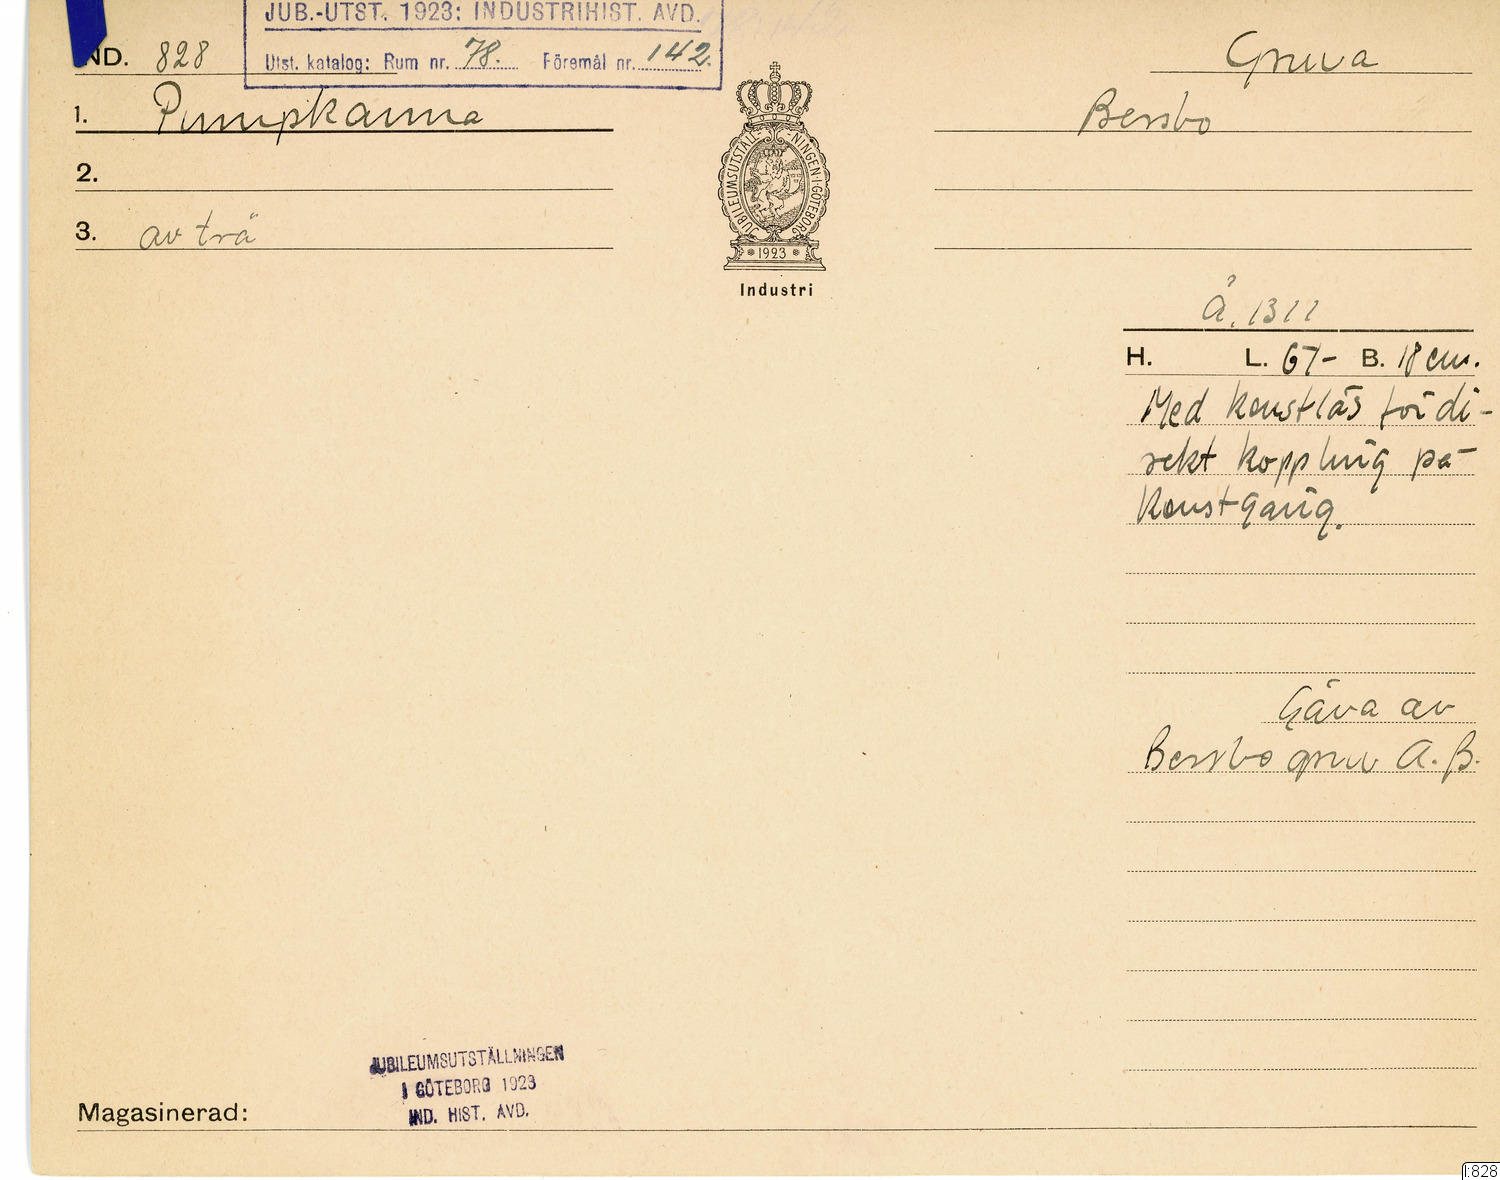 JUB.-UTST. 1923: INDUSTRIHIST. AVD.
IND. 828
Utst. katalog: Rum nr. 78. Föremål nr. 142.
Gruva
1. Pumpkanna
Bersbo
2.
3. av trä
JUBILEUMSUTSTÄLLNINGEN·I·GÖTEBORG
1923
Industri
Å. 1311
H. L. 67- B. 18 cm.
Med konstlås för di-
rekt koppling på
Konstgång.
Gåva av
Bersbo gruv A.B.
JUBILEUMSUTSTÄLLNINGEN
I GÖTEBORG 1923
IND. HIST. AVD.
Magasinerad:
I:828